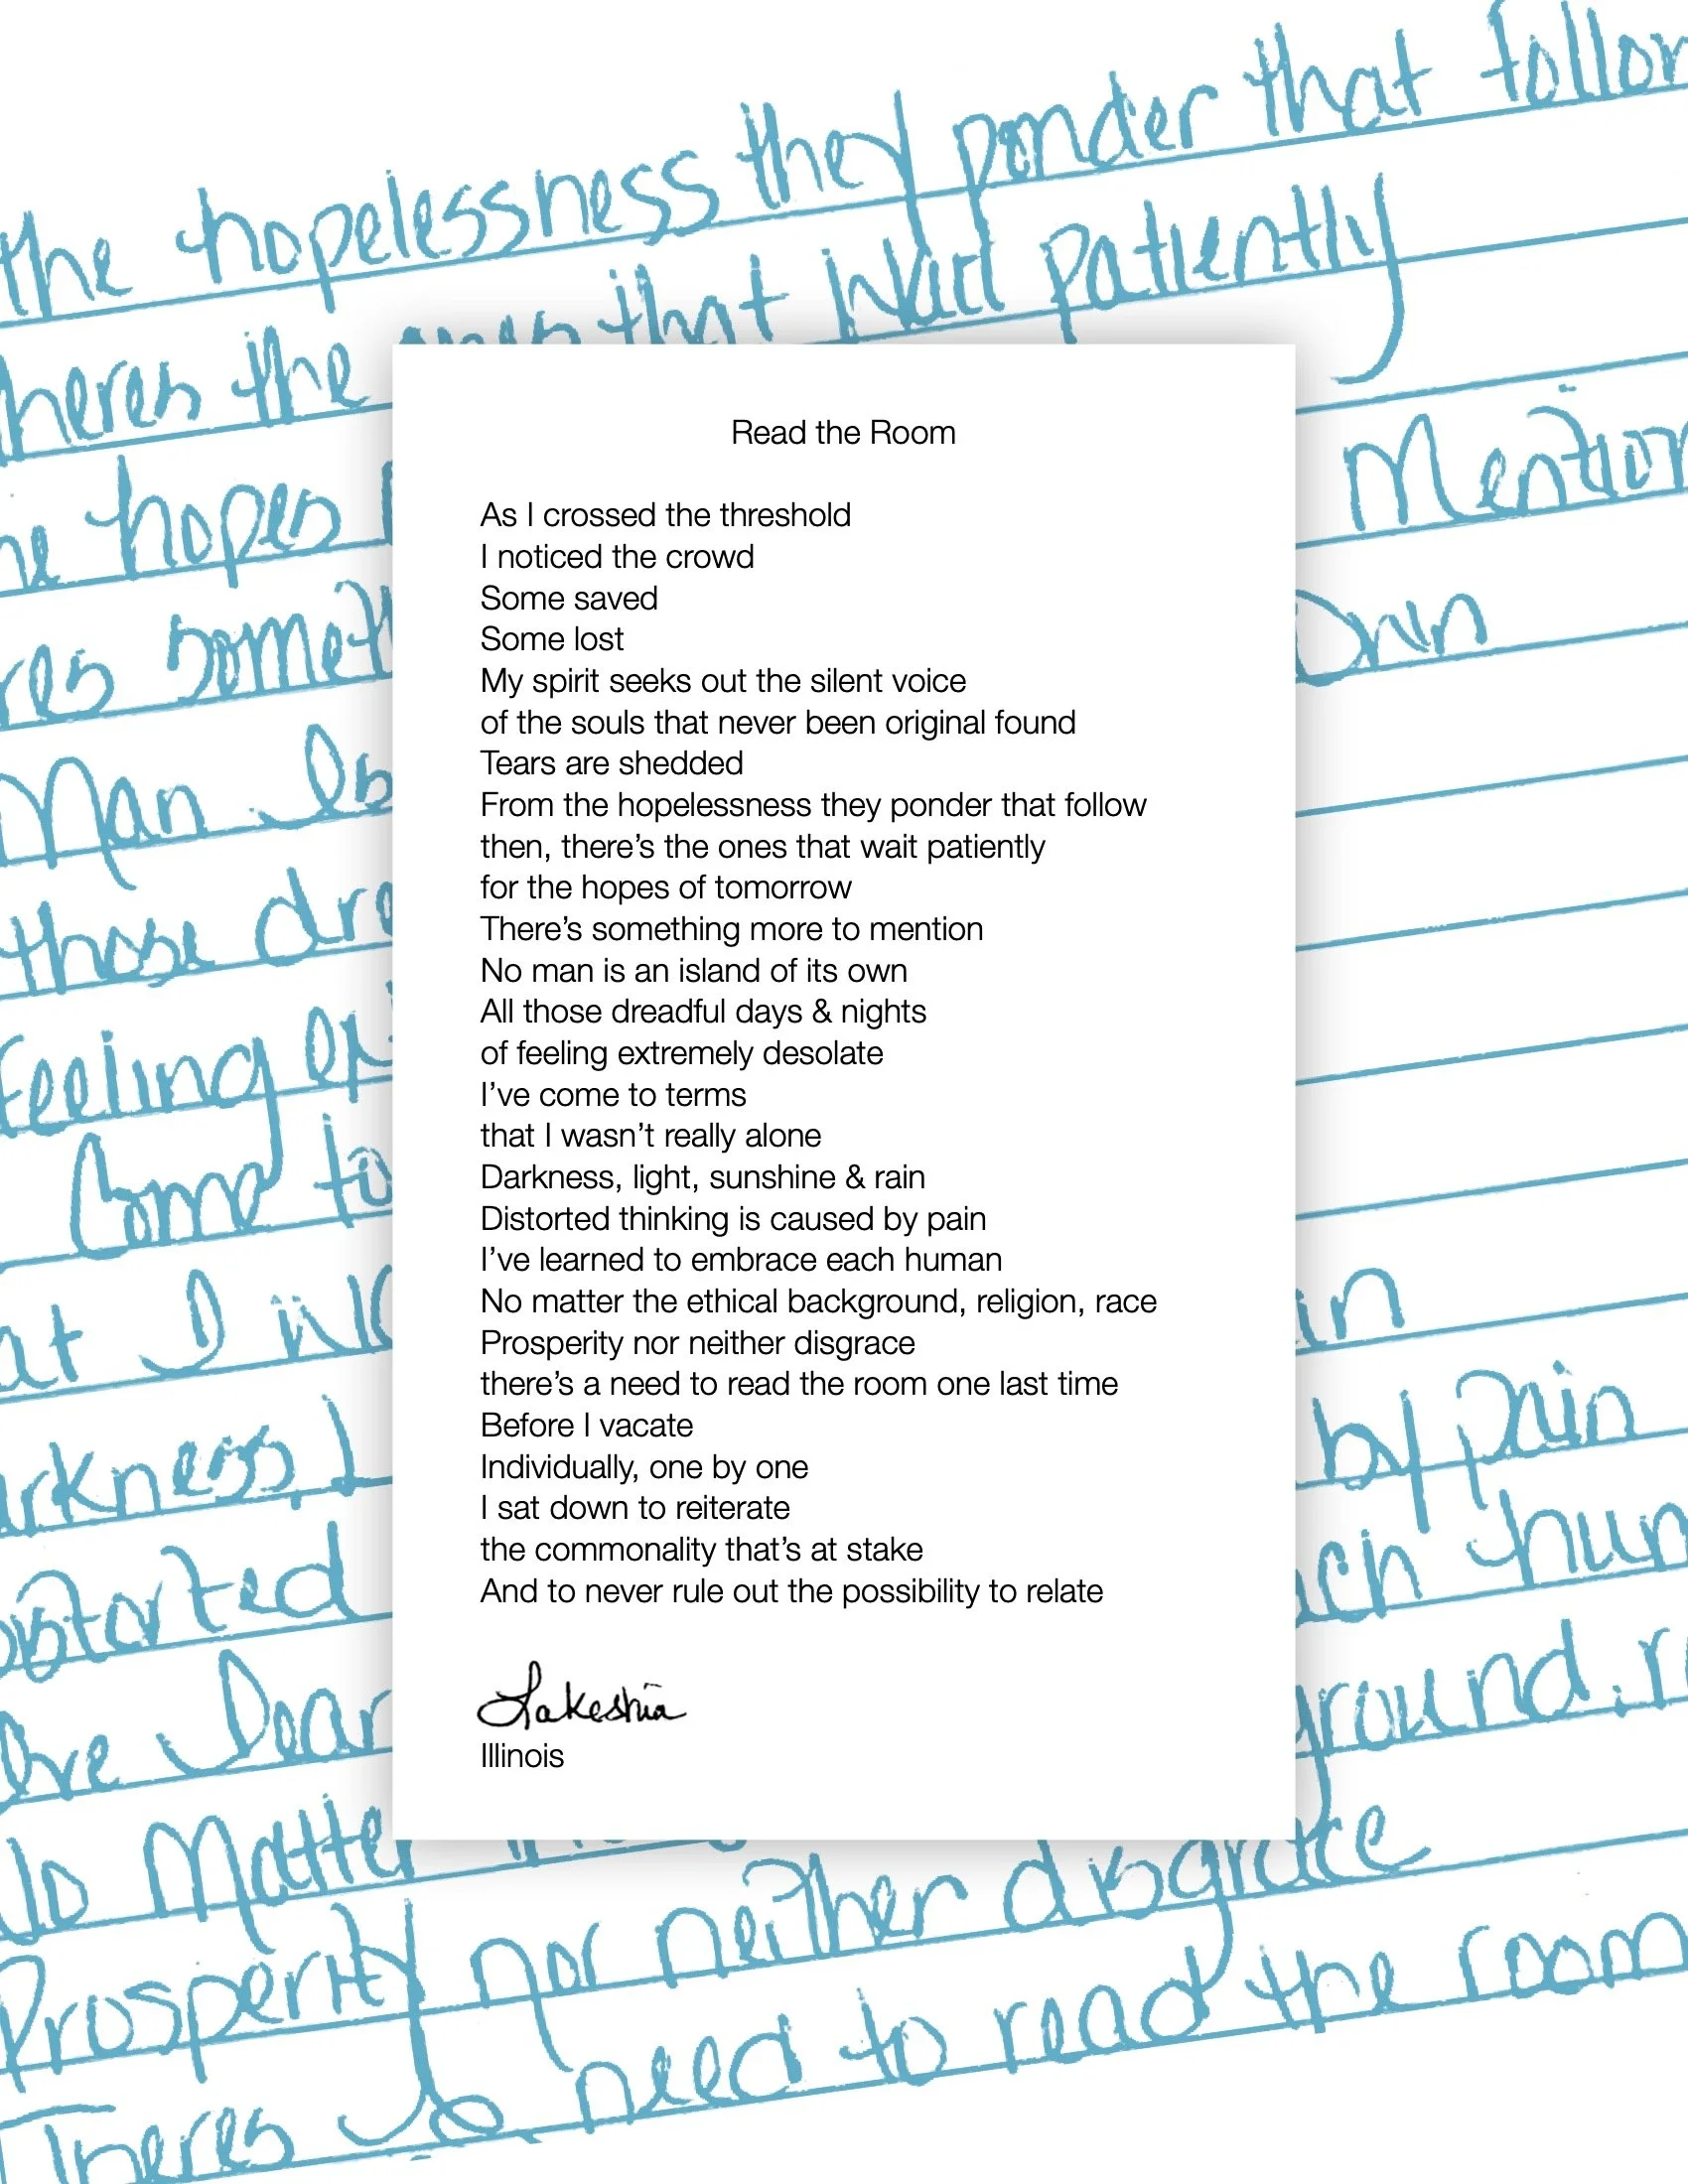 the hopelessness they ponder that follow
theres the ones that wait patiently
the hopes Mention
res someth Own
Man Is
those dre
feeling ex
Come to
at I wa in
arkness, L by pain
istorted ach hum
Ive lear ground, r
No Matter
Prosperity nor neither disgrace
Theres a need to read the room
Read the Room
As I crossed the threshold
I noticed the crowd
Some saved
Some lost
My spirit seeks out the silent voice
of the souls that never been original found
Tears are shedded
From the hopelessness they ponder that follow
then, there’s the ones that wait patiently
for the hopes of tomorrow
There’s something more to mention
No man is an island of its own
All those dreadful days & nights
of feeling extremely desolate
I’ve come to terms
that I wasn’t really alone
Darkness, light, sunshine & rain
Distorted thinking is caused by pain
I’ve learned to embrace each human
No matter the ethical background, religion, race
Prosperity nor neither disgrace
there’s a need to read the room one last time
Before I vacate
Individually, one by one
I sat down to reiterate
the commonality that’s at stake
And to never rule out the possibility to relate
Lakeshia
Illinois